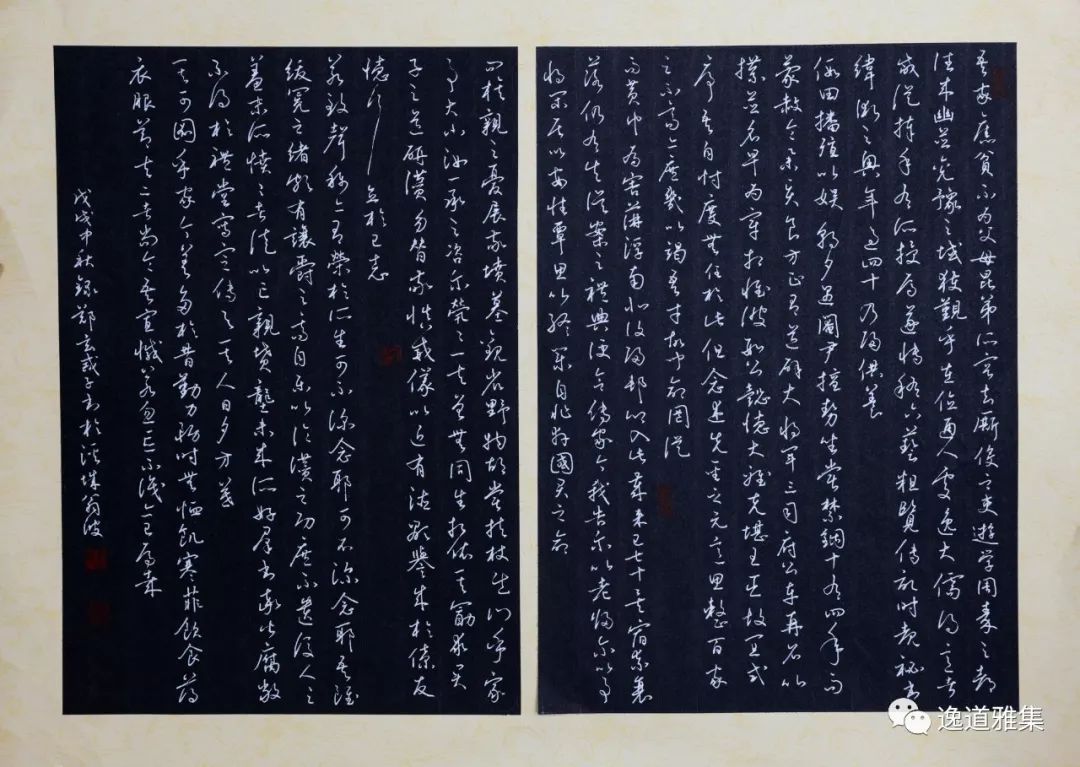 吾家旧貧不為父母昆弟所容去廝役之吏遊學周秦之都
往來幽並兗豫之域獲觀乎在位通人處逸大儒得意者
咸從捧手有所授焉遂博稽六藝粗覽傳記時覩秘書
緯術之奧年過四十乃歸供養
假田播殖以娛朝夕遇閹尹擅勢坐黨禁錮十有四年而
蒙赦令舉賢良方正有道辟大將軍三司府公車再召比
牒並名早為宰相惟彼數公懿德大雅克堪王臣故宜式
序吾自忖度無任於此但念述先聖之元意思整百家
之不齊亦庶幾以竭吾才故聞命罔從
而黃巾為害萍浮南北復歸邦鄉入此歲來已七十矣宿素衰
落仍有失誤案之禮典便合傳家今我告爾以老歸爾以事
將閒居以安性覃思以終業自非拜國君之命
問族親之憂展敬墳墓觀省野物胡嘗扶杖出門乎家
事大小汝一承之咨爾煢煢一夫曾無同生相依其勖求君
子之道研鑽勿替敬慎威儀以近有德顯譽成於僚友
德行立於己志
若致聲稱亦有榮於所生可不深念耶可不深念耶吾雖無
紱冕之緒頗有讓爵之高自樂以論贊之功庶不遺後人之
羞末所憤憤者徒以亡親墳壟未成所好群書率皆腐敝
不得於禮堂寫定傳與其人日夕方暮
其可圖乎家今差多於昔勤力務時無恤飢寒菲飲食薄
衣服節夫二者尚令吾寡憾若忽忘不識亦已焉哉
戊戌中秋錄鄭玄戒子書於
逸道雅集